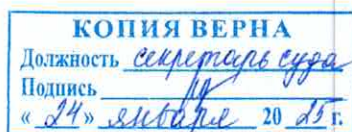 КОПИЯ ВЕРНА
Должность секретарь суда
Подпись
« 24 » января 20 25 г.